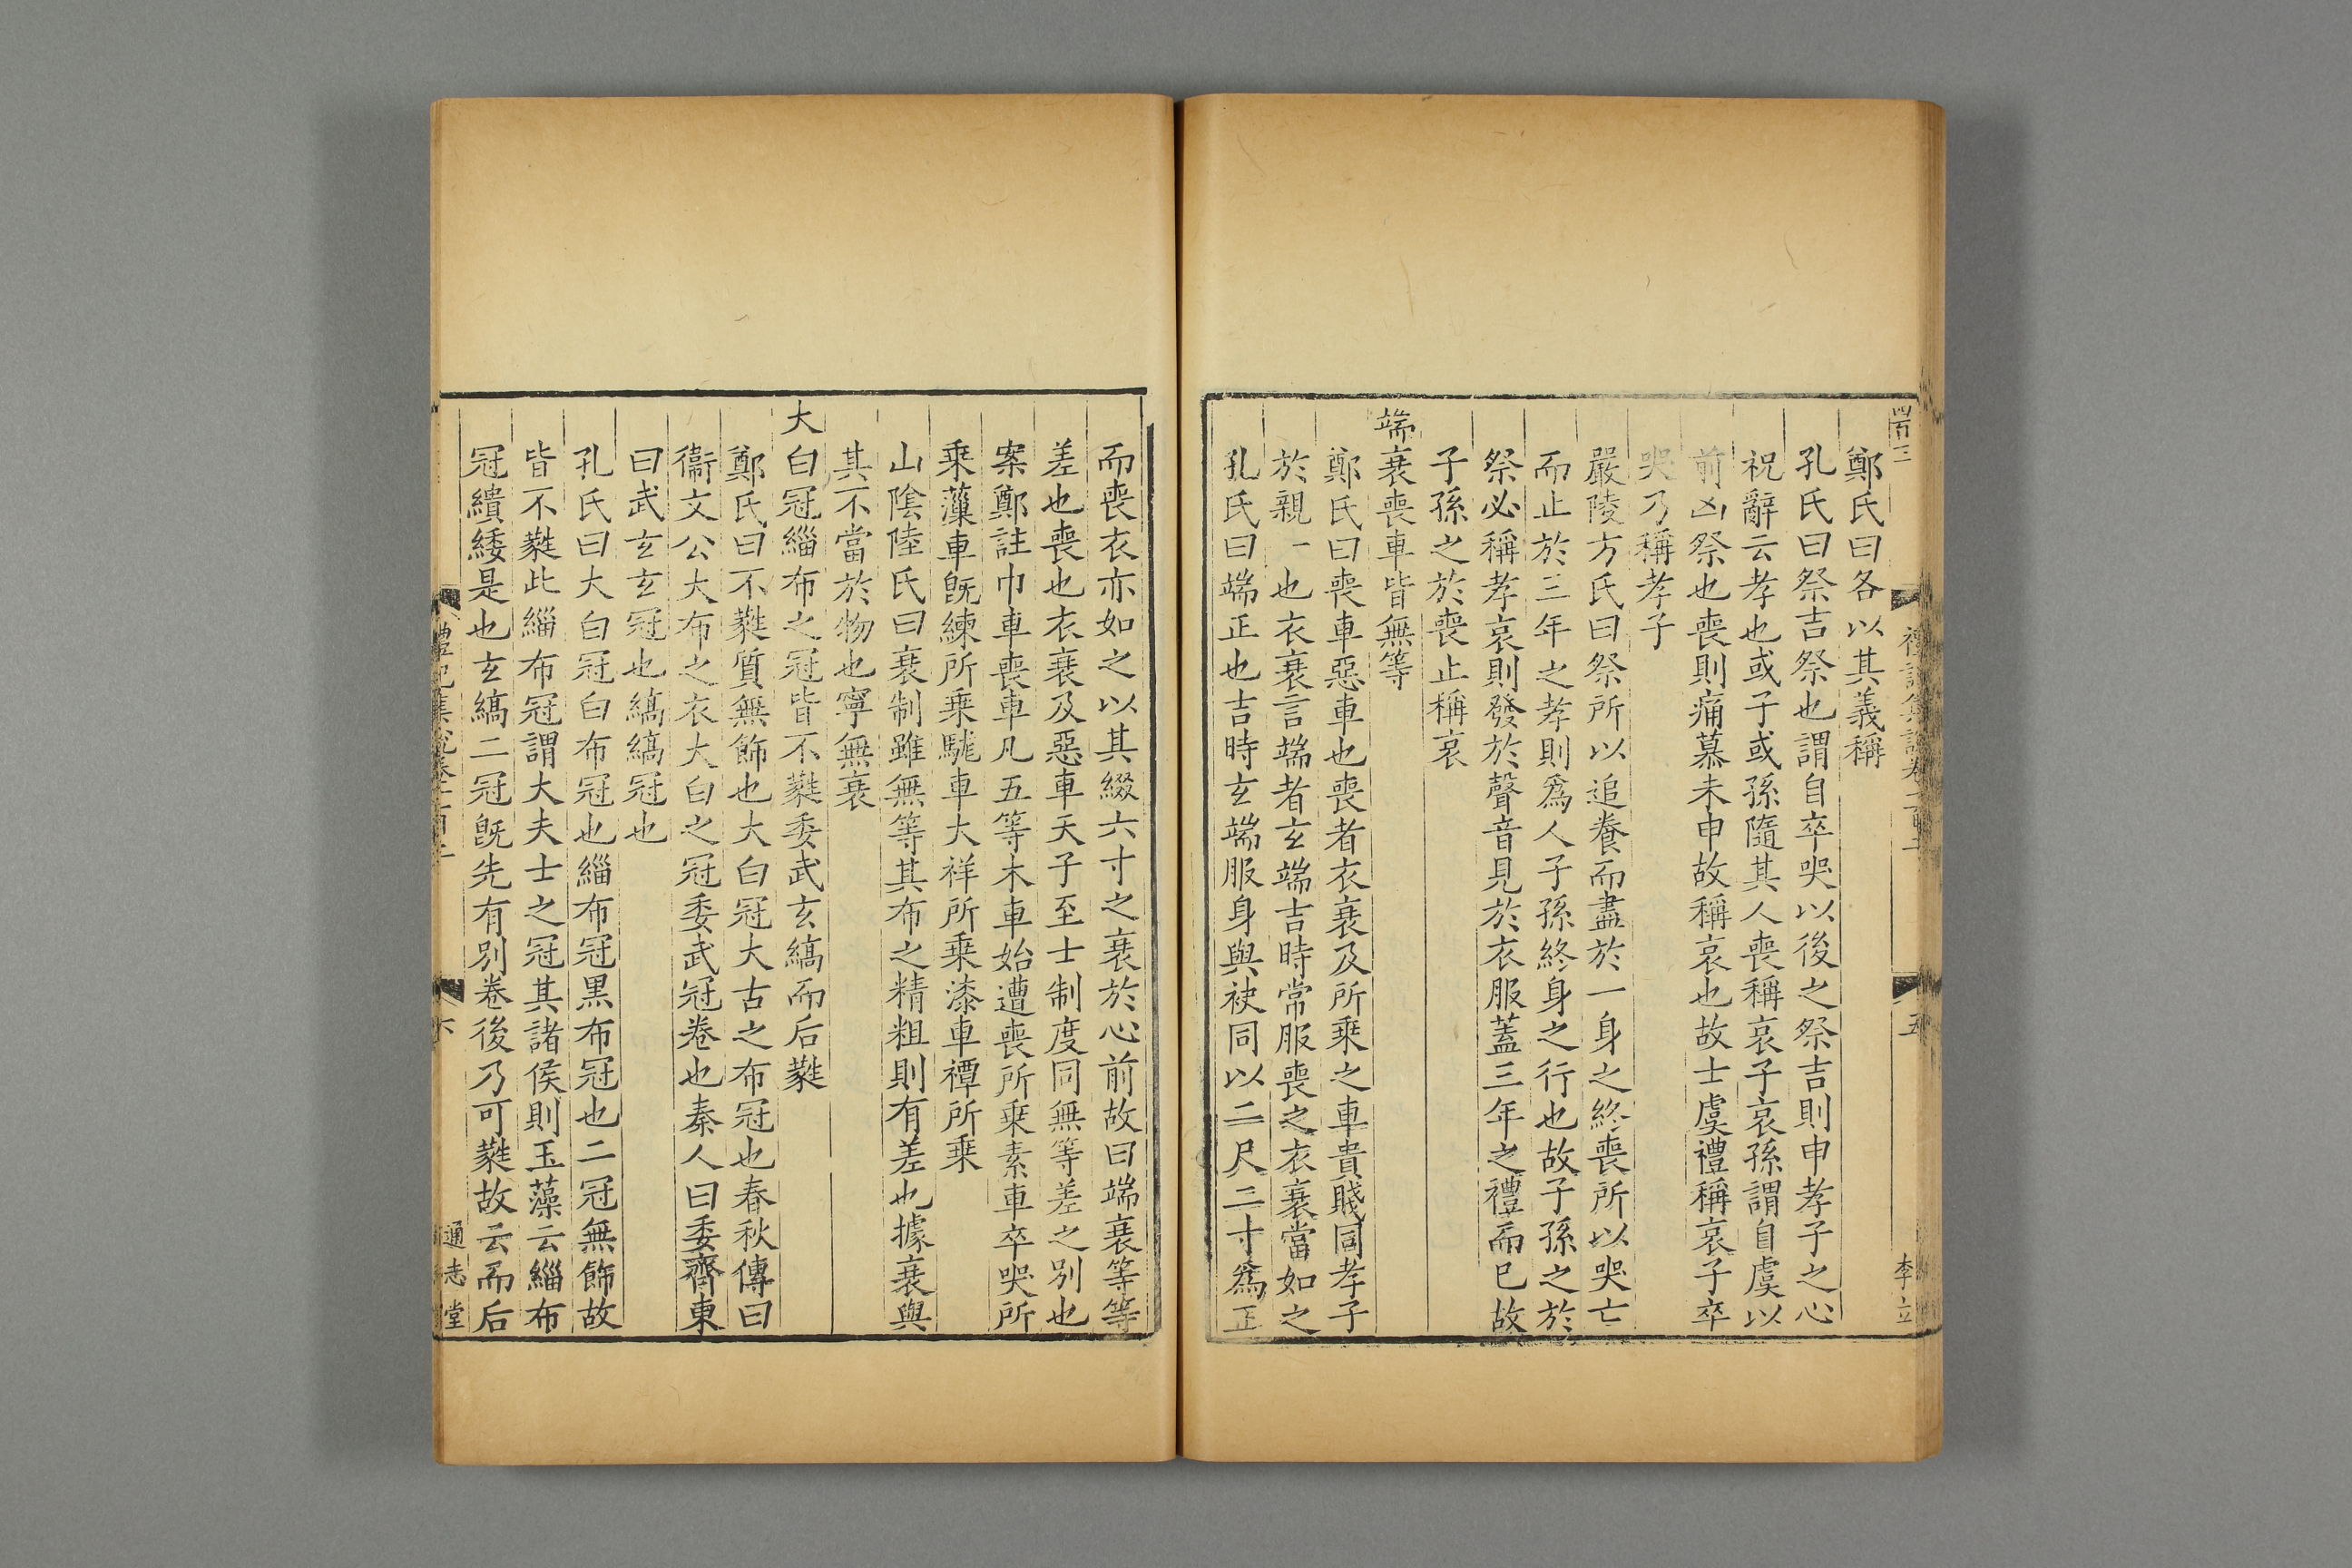 李立
鄭氏曰各以其義稱
孔氏曰祭吉祭也謂自卒哭以後之祭吉則申孝子之心
祝辭云孝也或子或孫隨其人喪稱哀子哀孫謂自虞以
前凶祭也喪則痛慕未申故稱哀也故士虞禮稱哀子卒
哭乃稱孝子
嚴陵方氏曰祭所以追養而盡於一身之終喪所以哭亡
而止於三年之孝則爲人子孫終身之行也故子孫之於
祭必稱孝哀則發於聲音見於衣服蓋三年之禮而已故
子孫之於喪止稱哀
端衰喪車皆無等
鄭氏曰喪車惡車也喪者衣衰及所乗之車貴賤同孝子
於親一也衣衰言端者玄端吉時常服喪之衣衰當如之
孔氏曰端正也吉時玄端服身與袂同以二尺二寸爲正
而喪衣亦如之以其綴六寸之衰於心前故曰端衰等等
差也喪也衣衰及惡車天子至士制度同無等差之別也
案鄭註巾車喪車凡五等木車始遭喪所乗素車卒哭所
乗薻車旣練所乗駹車大祥所乗漆車禫所乗
山陰陸氏曰衰制雖無等其布之精粗則有差也據衰與
其不當於物也寧無衰
大白冠緇布之冠皆不蕤委武玄縞而后蕤
鄭氏曰不蕤質無飾也大白冠大古之布冠也春秋傳曰
衞文公大布之衣大白之冠委武冠卷也秦人曰委齊東
曰武玄玄冠也縞縞冠也
孔氏曰大白冠白布冠也緇布冠黒布冠也二冠無飾故
皆不蕤此緇布冠謂大夫士之冠其諸侯則玉藻云緇布
冠繢緌是也玄縞二冠旣先有別卷後乃可蕤故云而后
通志堂